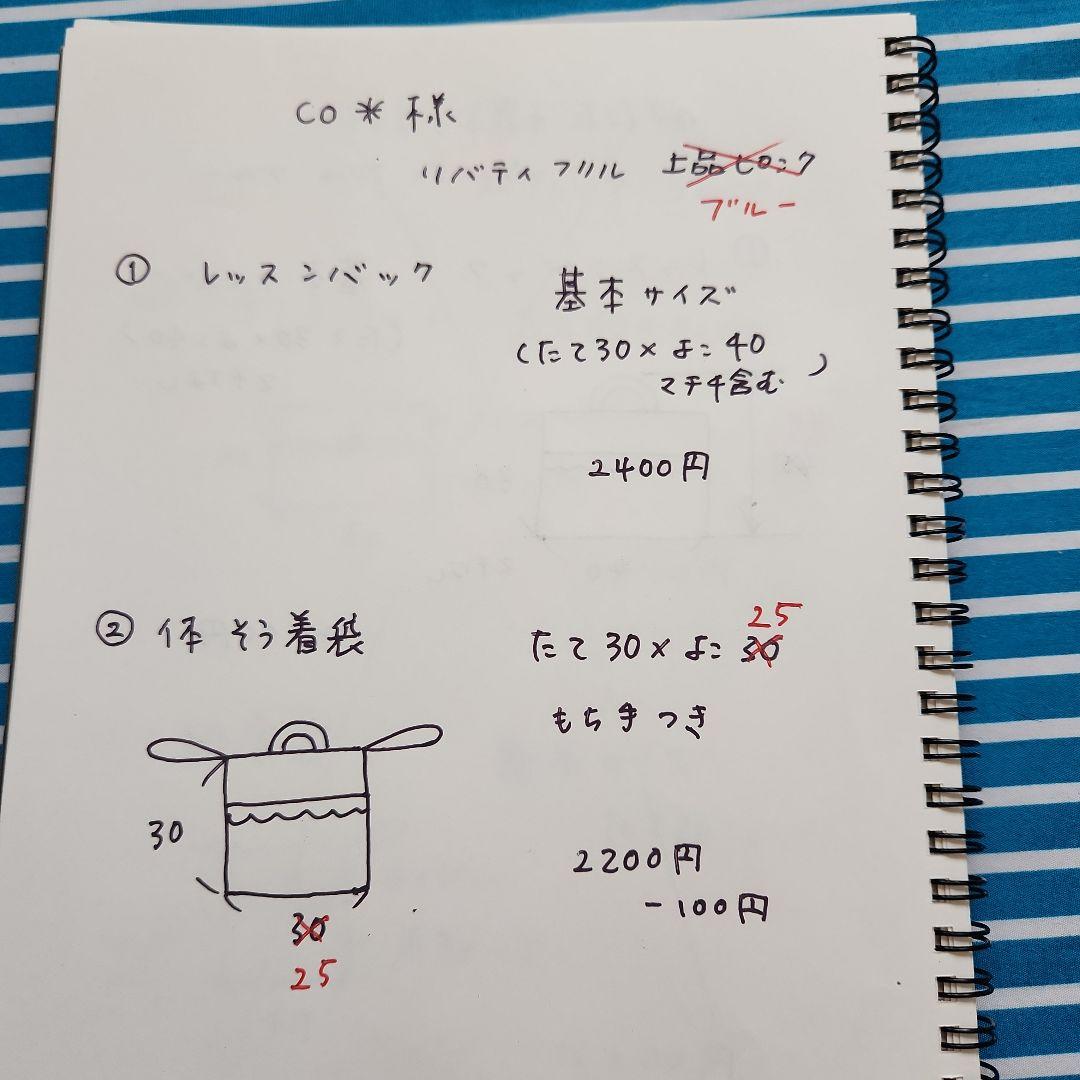 CO＊様
リバティフリル 上品ピンク
ブルー
① レッスンバック
基本サイズ
(たて30×よこ40
マチ含む)
2400円
② 体そう着袋
25
たて30×よこ30
もち手つき
30
30
25
2200円
-100円